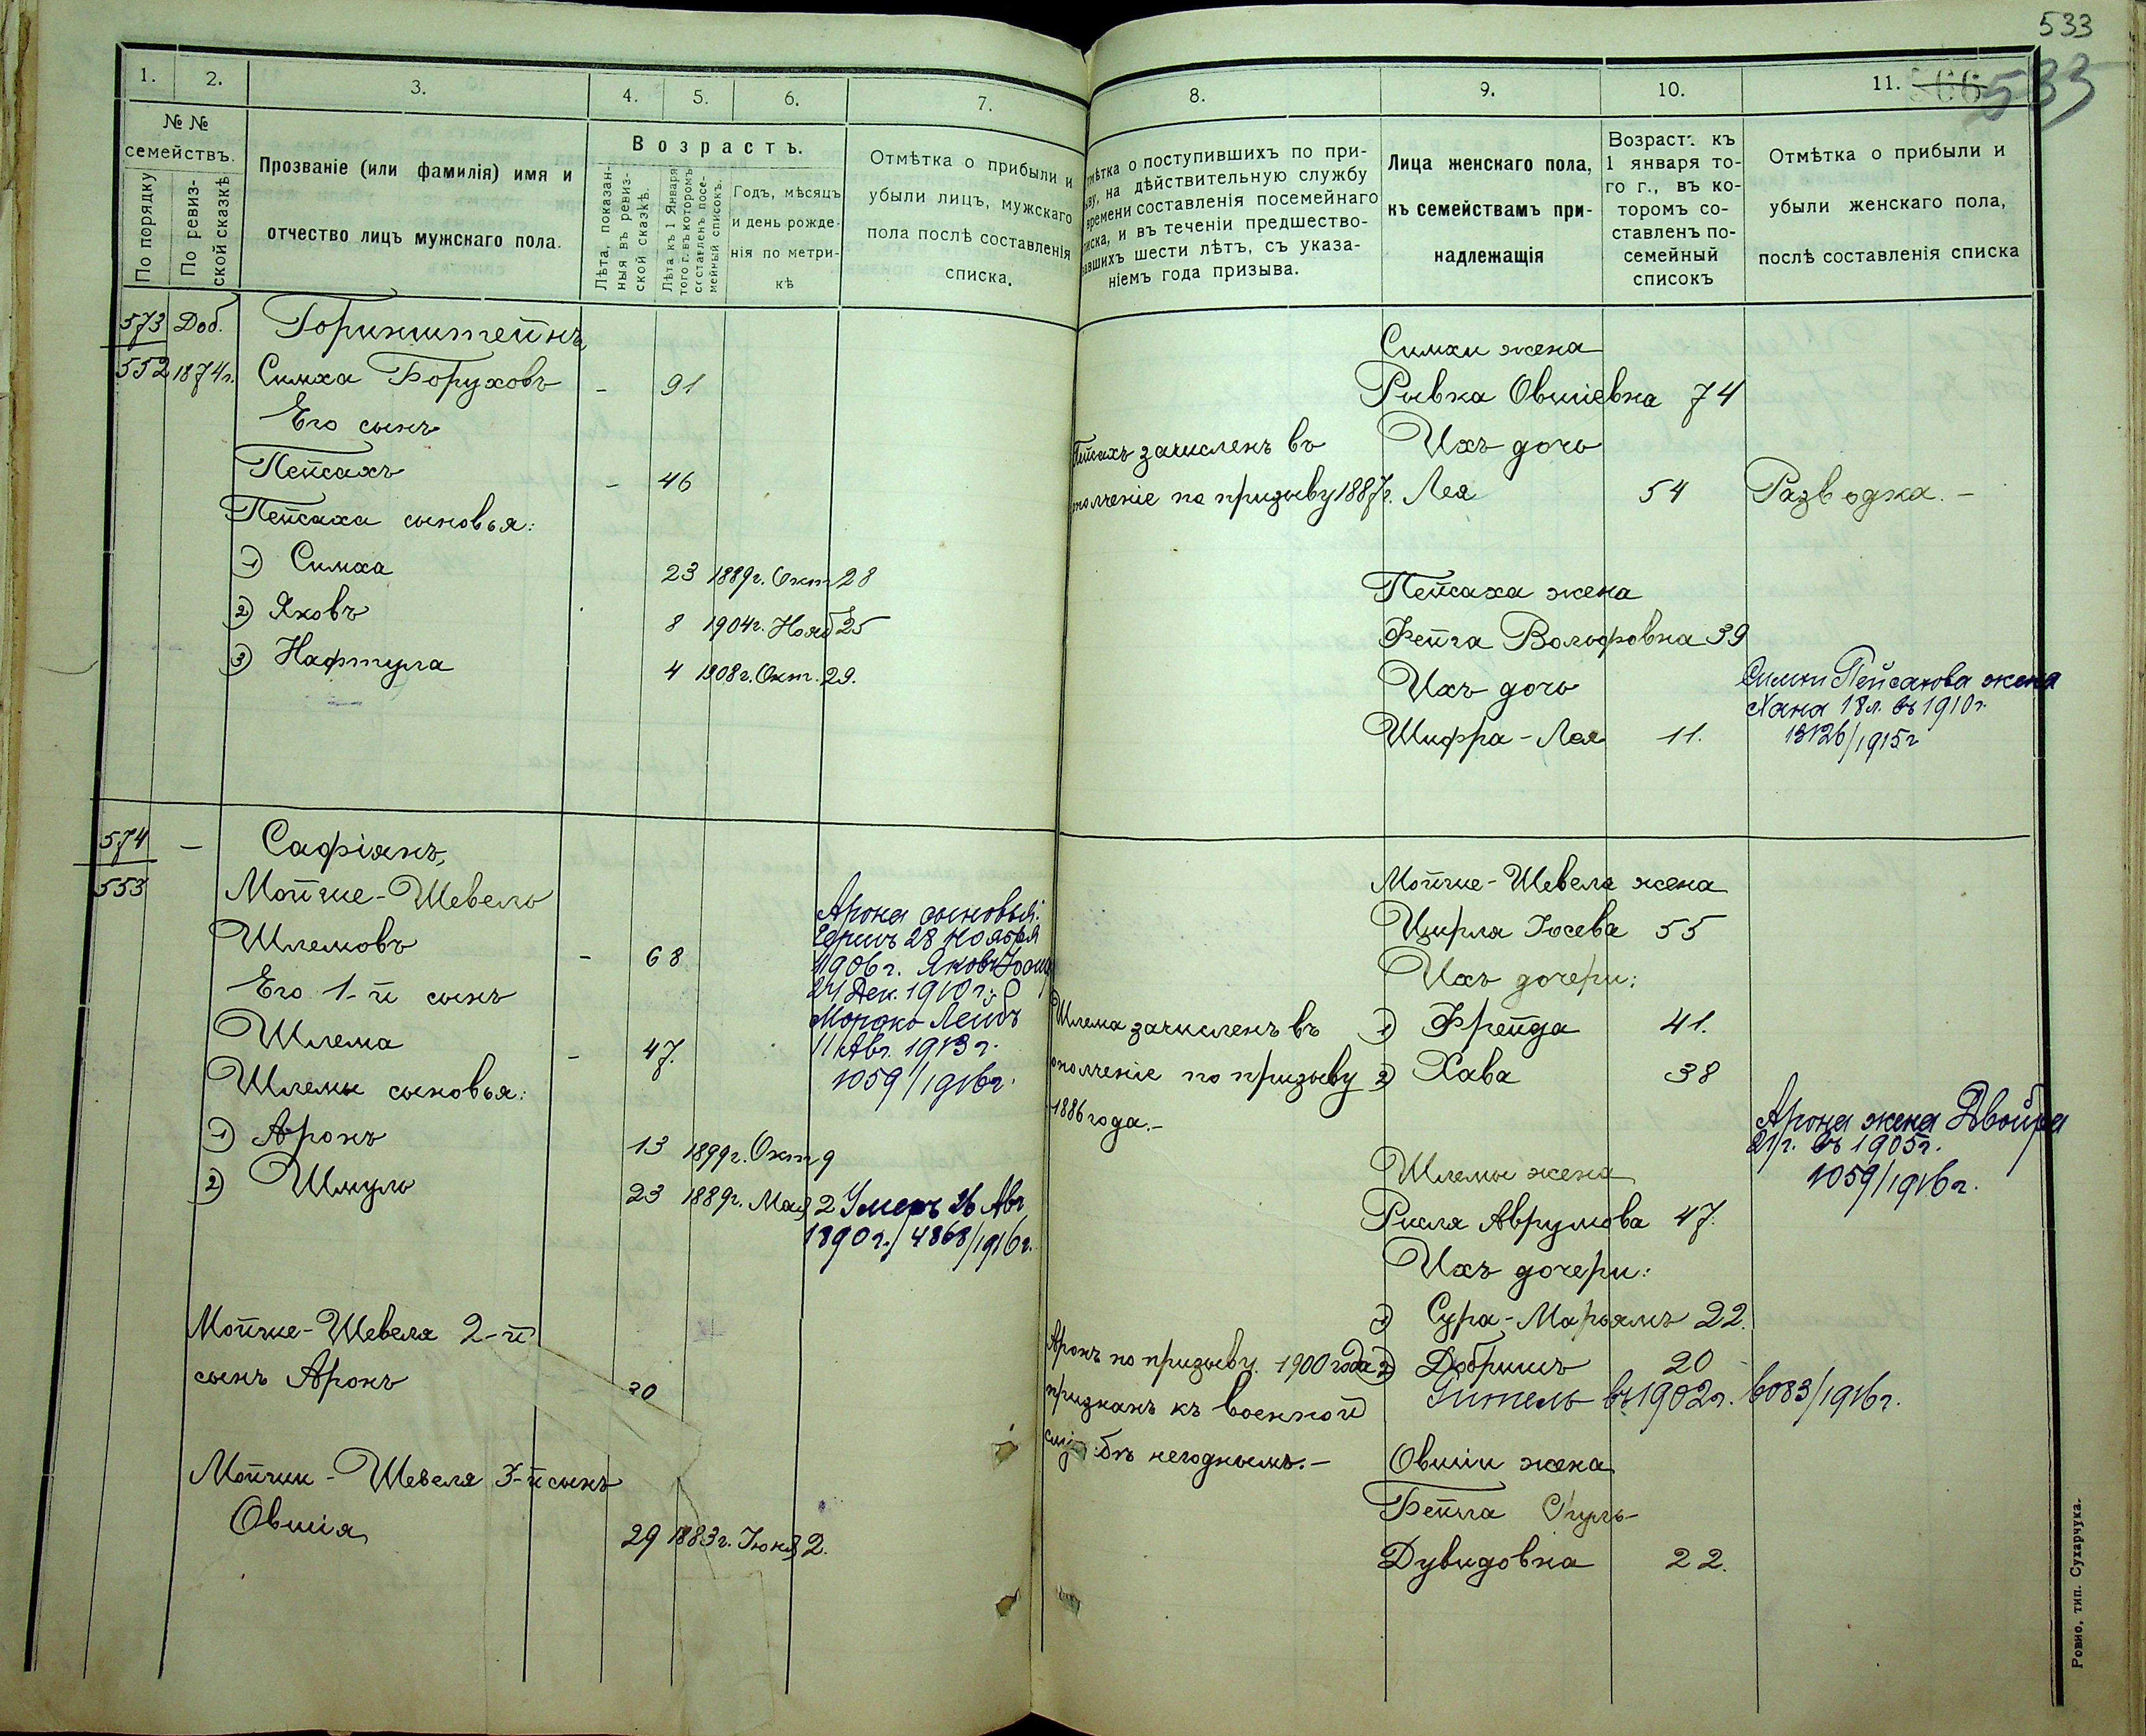 533
1.
2.
3.
4.
5.
6.
7.
№ №
семействъ.
По порядку
По ревиз-
ской сказкѣ
Прозваніе (или фамилія) имя и
отчество лицъ мужскаго пола.
Возрастъ.
Лѣта, показан-
ныя въ ревиз-
ской сказкѣ.
Лѣта къ 1 Января
того г. въ которомъ
составленъ посе-
мейный списокъ.
Годъ, мѣсяцъ
и день рожде-
нія по метри-
кѣ
Отмѣтка о прибыли и
убыли лицъ, мужскаго
пола послѣ составленія
списка.
573 Доб. Горинштейнъ
552 1874г. Симха Боруховъ - 91
Его сынъ
Пейсахъ - 46
Пейсаха сыновья:
1) Симха 23 1889г. Окт 28
2) Яковъ 8 1904г. Нояб 25
3) Нафтула 4 1908г. Окт. 29.
574 - Сафіянъ,
553 Мойше-Шевель
Шлемовъ - 68
Его 1-й сынъ
Шлема - 47.
Шлемы сыновья:
1) Аронъ 13 1899г. Окт 9
2) Шмуль 23 1889г. Мая 2 Умеръ 26 Авг
1890г./4868/1916г.
Арона сыновья:
Гершъ 28 Ноября
1906г. Яковъ
24 Дек. 1910г.
Мордко Лейбъ
11 Авг. 1913г.
1059/1916г.
Мойше-Шевеля 2-й
сынъ Аронъ 30
Мойши-Шевеля 3-й сынъ
Овшія 29 1883г. Іюня 2.
8.
9.
10.
11.
533
отмѣтка о поступившихъ по при-
зыву, на дѣйствительную службу
времени составленія посемейнаго
списка, и въ теченіи предшество-
вавшихъ шести лѣтъ, съ указа-
ніемъ года призыва.
Лица женскаго пола,
къ семействамъ при-
надлежащія
Возрастъ къ
1 января то-
го г., въ ко-
торомъ со-
ставленъ по-
семейный
списокъ
Отмѣтка о прибыли и
убыли женскаго пола,
послѣ составленія списка
Симхи жена
Рывка Овшіевна 74
Пейсахъ зачисленъ въ Ихъ дочь
ополченіе по призыву 1887г. Лея 54 Разводка. -
Пейсаха жена
Фейга Вольфовна 39
Ихъ дочь
Шифра-Лея 11.
Симхи Пейсахова жена
Хана 18л. въ 1910г.
13126/1915г
Мойше-Шевеля жена
Цирля Іосева 55
Ихъ дочери:
Шлема зачисленъ въ 1) Фрейда 41.
ополченіе по призыву 2) Хава 38
1886 года.-
Арона жена Двойра
21г. въ 1905г.
1059/1916г.
Шлемы жена
Рисля Аврумова 47.
Ихъ дочери:
1) Сура-Марьямъ 22.
Аронъ по призыву 1900 года 2) Добришъ 20
признанъ къ военной Гитель въ 1902г. 6083/1916г.
службѣ негоднымъ.- Овшіи жена
Бейла
Дувидовна 22.
Ровно, тип. Сухарчука.